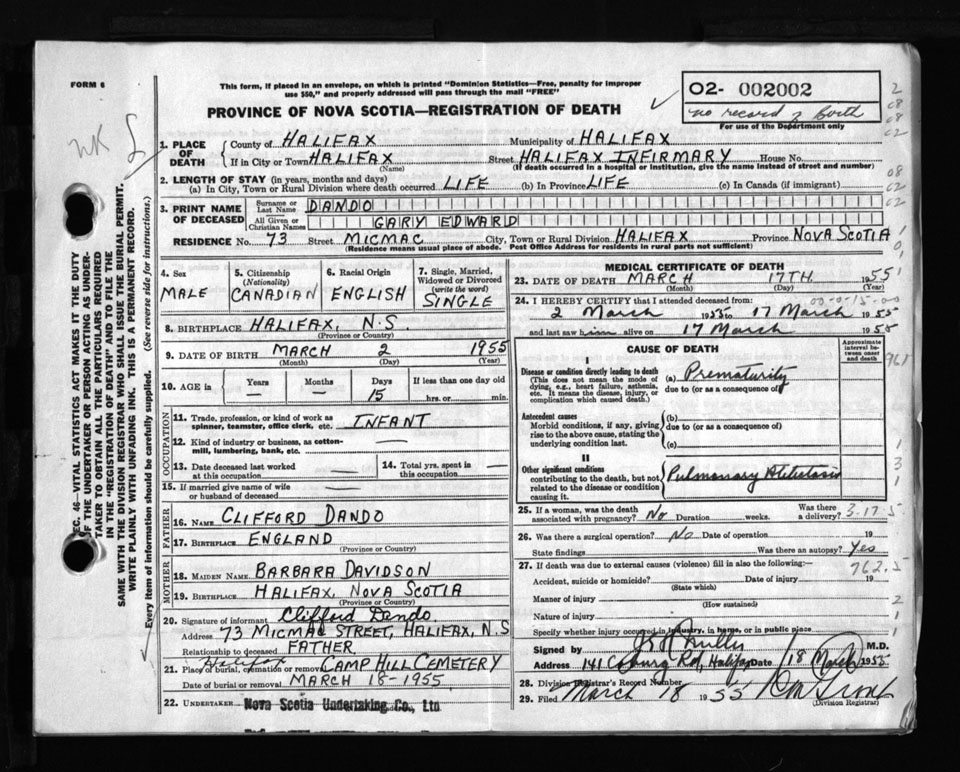 FORM 6
This form, if placed in an envelope, on which is printed "Dominion Statistics—Free, penalty for improper
use $50," and properly addressed will pass through the mail "FREE"
PROVINCE OF NOVA SCOTIA—REGISTRATION OF DEATH
O2- 002002
no record of birth
For use of the Department only
SEC. 46—VITAL STATISTICS ACT MAKES IT THE DUTY
OF THE UNDERTAKER OR PERSON ACTING AS UNDER-
TAKER TO OBTAIN ALL THE PARTICULARS REQUIRED
IN THE "REGISTRATION OF DEATH" AND TO FILE THE
SAME WITH THE DIVISION REGISTRAR WHO SHALL ISSUE THE BURIAL PERMIT.
WRITE PLAINLY WITH UNFADING INK. THIS IS A PERMANENT RECORD.
Every item of information should be carefully supplied. (See reverse side for instructions.)
1. PLACE OF DEATH County of HALIFAX Municipality of HALIFAX
If in City or Town HALIFAX Street HALIFAX INFIRMARY House No.
(Name) (If death occurred in a hospital or institution, give the name instead of street and number)
2. LENGTH OF STAY (in years, months and days)
(a) In City, Town or Rural Division where death occurred LIFE (b) In Province LIFE (c) In Canada (if immigrant)
3. PRINT NAME OF DECEASED Surname or Last Name DANDO
All Given or Christian Names GARY EDWARD
RESIDENCE No. 73 Street MICMAC City, Town or Rural Division HALIFAX Province NOVA SCOTIA
(Residence means usual place of abode. Post Office Address for residents in rural parts not sufficient)
4. Sex MALE
5. Citizenship (Nationality) CANADIAN
6. Racial Origin ENGLISH
7. Single, Married, Widowed or Divorced (write the word) SINGLE
8. BIRTHPLACE HALIFAX, N.S.
(Province or Country)
9. DATE OF BIRTH MARCH 2 1955
(Month) (Day) (Year)
10. AGE in Years — Months — Days 15 If less than one day old hrs. or min.
OCCUPATION
11. Trade, profession, or kind of work as spinner, teamster, office clerk, etc. INFANT
12. Kind of industry or business, as cotton-mill, lumbering, bank, etc. —
13. Date deceased last worked at this occupation —
14. Total yrs. spent in this occupation —
15. If married give name of wife or husband of deceased —
FATHER
16. NAME CLIFFORD DANDO
17. BIRTHPLACE ENGLAND
(Province or Country)
MOTHER
18. MAIDEN NAME BARBARA DAVIDSON
19. BIRTHPLACE HALIFAX, NOVA SCOTIA
(Province or Country)
20. Signature of informant Clifford Dando
Address 73 MICMAC STREET, HALIFAX, N.S
Relationship to deceased FATHER
21. Place of burial, cremation or removal Halifax CAMP HILL CEMETERY
Date of burial or removal MARCH 18-1955
22. UNDERTAKER Nova Scotia Undertaking Co., Ltd
MEDICAL CERTIFICATE OF DEATH
23. DATE OF DEATH MARCH 17TH 1955
(Month) (Day) (Year)
24. I HEREBY CERTIFY that I attended deceased from:
2 March 1955 to 17 March 1955
and last saw him alive on 17 March 1955
CAUSE OF DEATH
Approximate interval between onset and death
I
Disease or condition directly leading to death (a) Prematurity
(This does not mean the mode of dying, e.g., heart failure, asthenia, etc. It means the disease, injury, or complication which caused death.)
due to (or as a consequence of)
Antecedent causes (b)
Morbid conditions, if any, giving rise to the above cause, stating the underlying condition last.
due to (or as a consequence of)
(c)
II
Other significant conditions contributing to the death, but not related to the disease or condition causing it. Pulmonary Atelectasis
25. If a woman, was the death associated with pregnancy? No Duration weeks. Was there a delivery? 3-17-5
26. Was there a surgical operation? No Date of operation 19
State findings Was there an autopsy? Yes
27. If death was due to external causes (violence) fill in also the following:— 762.5
Accident, suicide or homicide? Date of injury 19
(State which)
Manner of injury
(How sustained)
Nature of injury
Specify whether injury occurred in industry, in home, or in public place
Signed by M.D.
Address 141 Coburg Rd, Halifax Date 18 March 1955
28. Division Registrar's Record Number
29. Filed March 18 1955
(Division Registrar)